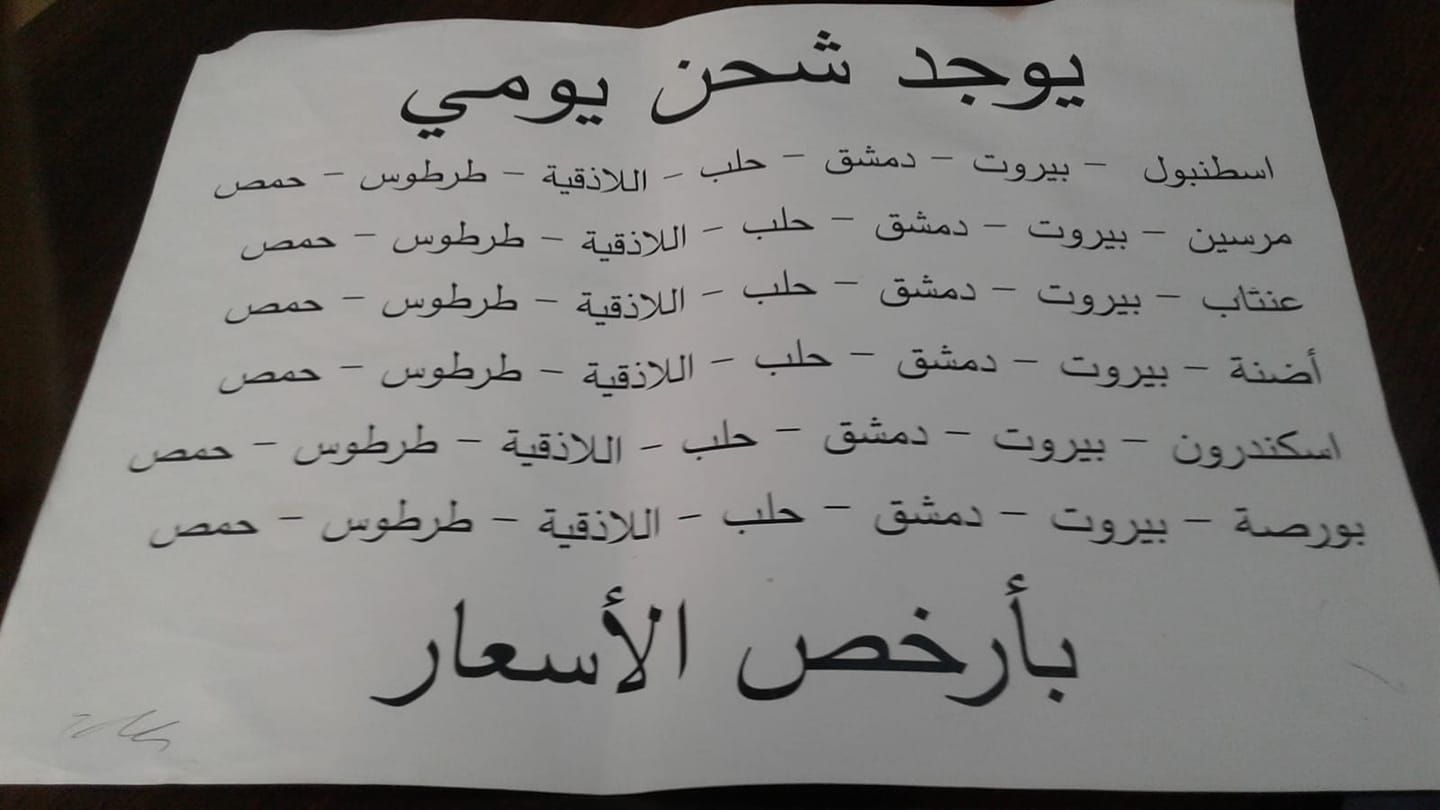 يوجد شحن يومي
اسطنبول – بيروت – دمشق – حلب - اللاذقية – طرطوس – حمص
مرسين – بيروت – دمشق – حلب - اللاذقية – طرطوس – حمص
عنتاب – بيروت – دمشق – حلب - اللاذقية – طرطوس – حمص
أضنة – بيروت – دمشق – حلب - اللاذقية – طرطوس – حمص
اسكندرون – بيروت – دمشق – حلب - اللاذقية – طرطوس – حمص
بورصة – بيروت – دمشق – حلب - اللاذقية – طرطوس – حمص
بأرخص الأسعار